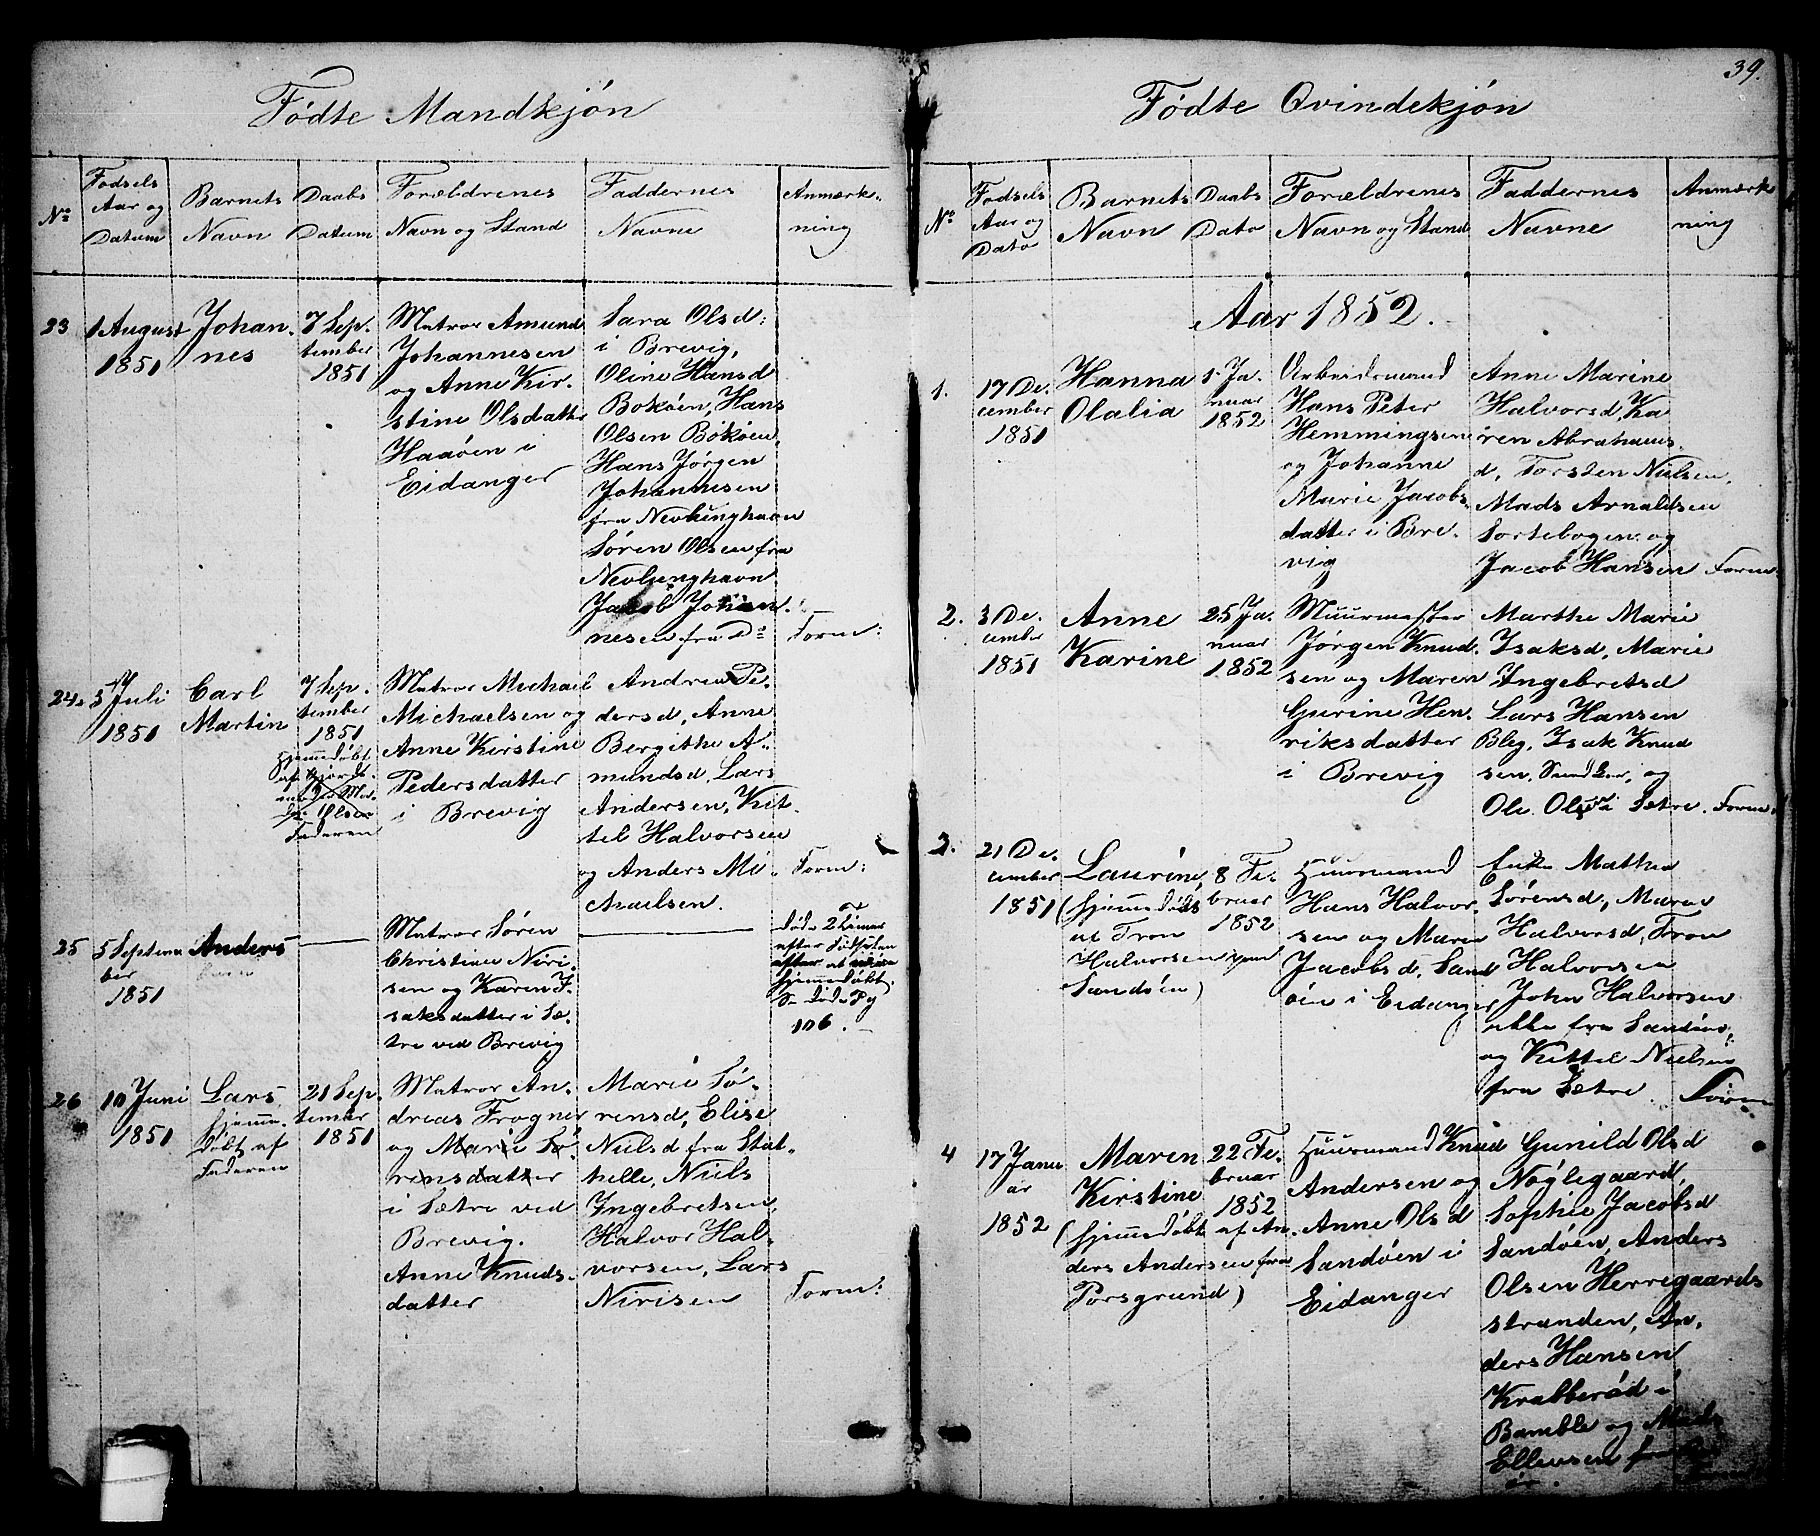 39.
Fødte Mandkjøn
No
Fødsels Aar og Datum
Barnets Navn
Daabs Datum
Forældrenes Navn og Stand
Faddernes Navne
Anmærk-ning
23
1 August
1851
Johan-
nes
7 Sep-
tember
1851
Matros Amund
Johannesen
og Anne Kir-
stine Olsdatter
Haaøen i
Eidanger
Sara Olsd:
i Brevig,
Oline Hansd
Bokøen, Hans
Olsen Bokøen,
Hans Jørgen
Johannesen
fra Nevlunghavn
Søren Olsen fra
Nevlunghavn
Jacob Johan-
nesen fra Do
Form:
24.
5 Juli
1851
Carl
Martin
7 Sep-
tember
1851
Hjemmedøbt
Faderen
Matros Michael
Michaelsen og
Anne Kirstine
Pedersdatter
i Brevig
Andrea Pe-
dersd, Anne
Bergithe A-
mundsd, Lars
Andersen, Kit-
tel Halvorsen
og Anders Mi-
chaelsen.
Form:
25
5 Septem-
ber
1851
Anders
Matros Søren
Christian Niri-
sen og Karen I-
saksdatter i Sæ-
tre ved Brevig
døde 2 Timer
efter Fødselen
efter at være
hjemmedøbt.
Se døde Pg
106.
26
10 Juni
1851
Lars
hjemme-
døbt af
Faderen
21 Sep-
tember
1851
Matros An-
dreas Frogner
og Marie Sø-
rensdatter
i Sætre ved
Brevig.
Anne Knuds-
datter
Marie Sø-
rensd, Elise
Nielsd fra Stat-
helle, Niels
Ingebretsen,
Halvor Hal-
vorsen, Lars
Nirisen
Form:
Fødte Qvindekjøn
No
Fødsels Aar og Dato
Barnets Navn
Daabs Dato
Forældrenes Navn og Stand
Faddernes Navne
Anmærkning
Aar 1852.
1.
17 De-
cember
1851
Hanna
Olalia
1 Ja-
nuar
1852
Arbeidsmand
Hans Peter
Hemmingsen
og Johanne
Marie Jacobs-
datter i Bre-
vig
Anne Marine
Halvorsd, Ka
ren Abrahams-
d, Torsten Nielsen,
Mads Arnaldsen
Sortebogen og
Jacob Hansen
Form.
2.
3 De-
cember
1851
Anne
Karine
25 Ja-
nuar
1852
Muurmester
Jørgen Knud-
sen og Maren
Gurine Hen-
riksdatter
i Brevig
Marthe Marie
Isaksd, Marie
Ingebretsd
Lars Hansen
Bleg, Isak Knud
sen, Sundber, og
Ole Olsen Sætre.
Form.
3.
21 De-
cember
1851
Laurine,
(hjemmedøbt
af Tron
Halvorsen
Sandøen)
8 Fe-
bruar
1852
Huusmand
Hans Halvor-
sen og Maren
Jacobsd. Sand
øen i Eidanger
Mathea
Sørensd, Maren
Halvorsd, Tron
Halvorsen
John Halvorsen
fra Sandøen,
og Kittel Nielsen
fra Sætre.
Form
4
17 Janu
ar
1852
Maren
Kirstine
(hjemmedøbt af An-
ders Andersen fra
Porsgrund)
22 Fe-
bruar
1852
Huusmand Knud
Andersen og
Anne Olsd
Sandøen i
Eidanger
Gunild Olsd
Nøglegaard,
Sophie Jacobsd
Sandøen, Anders
Olsen Herregaards
stranden, An-
ders Hansen
Krabberød i
Bamble og Mads
Ellensen